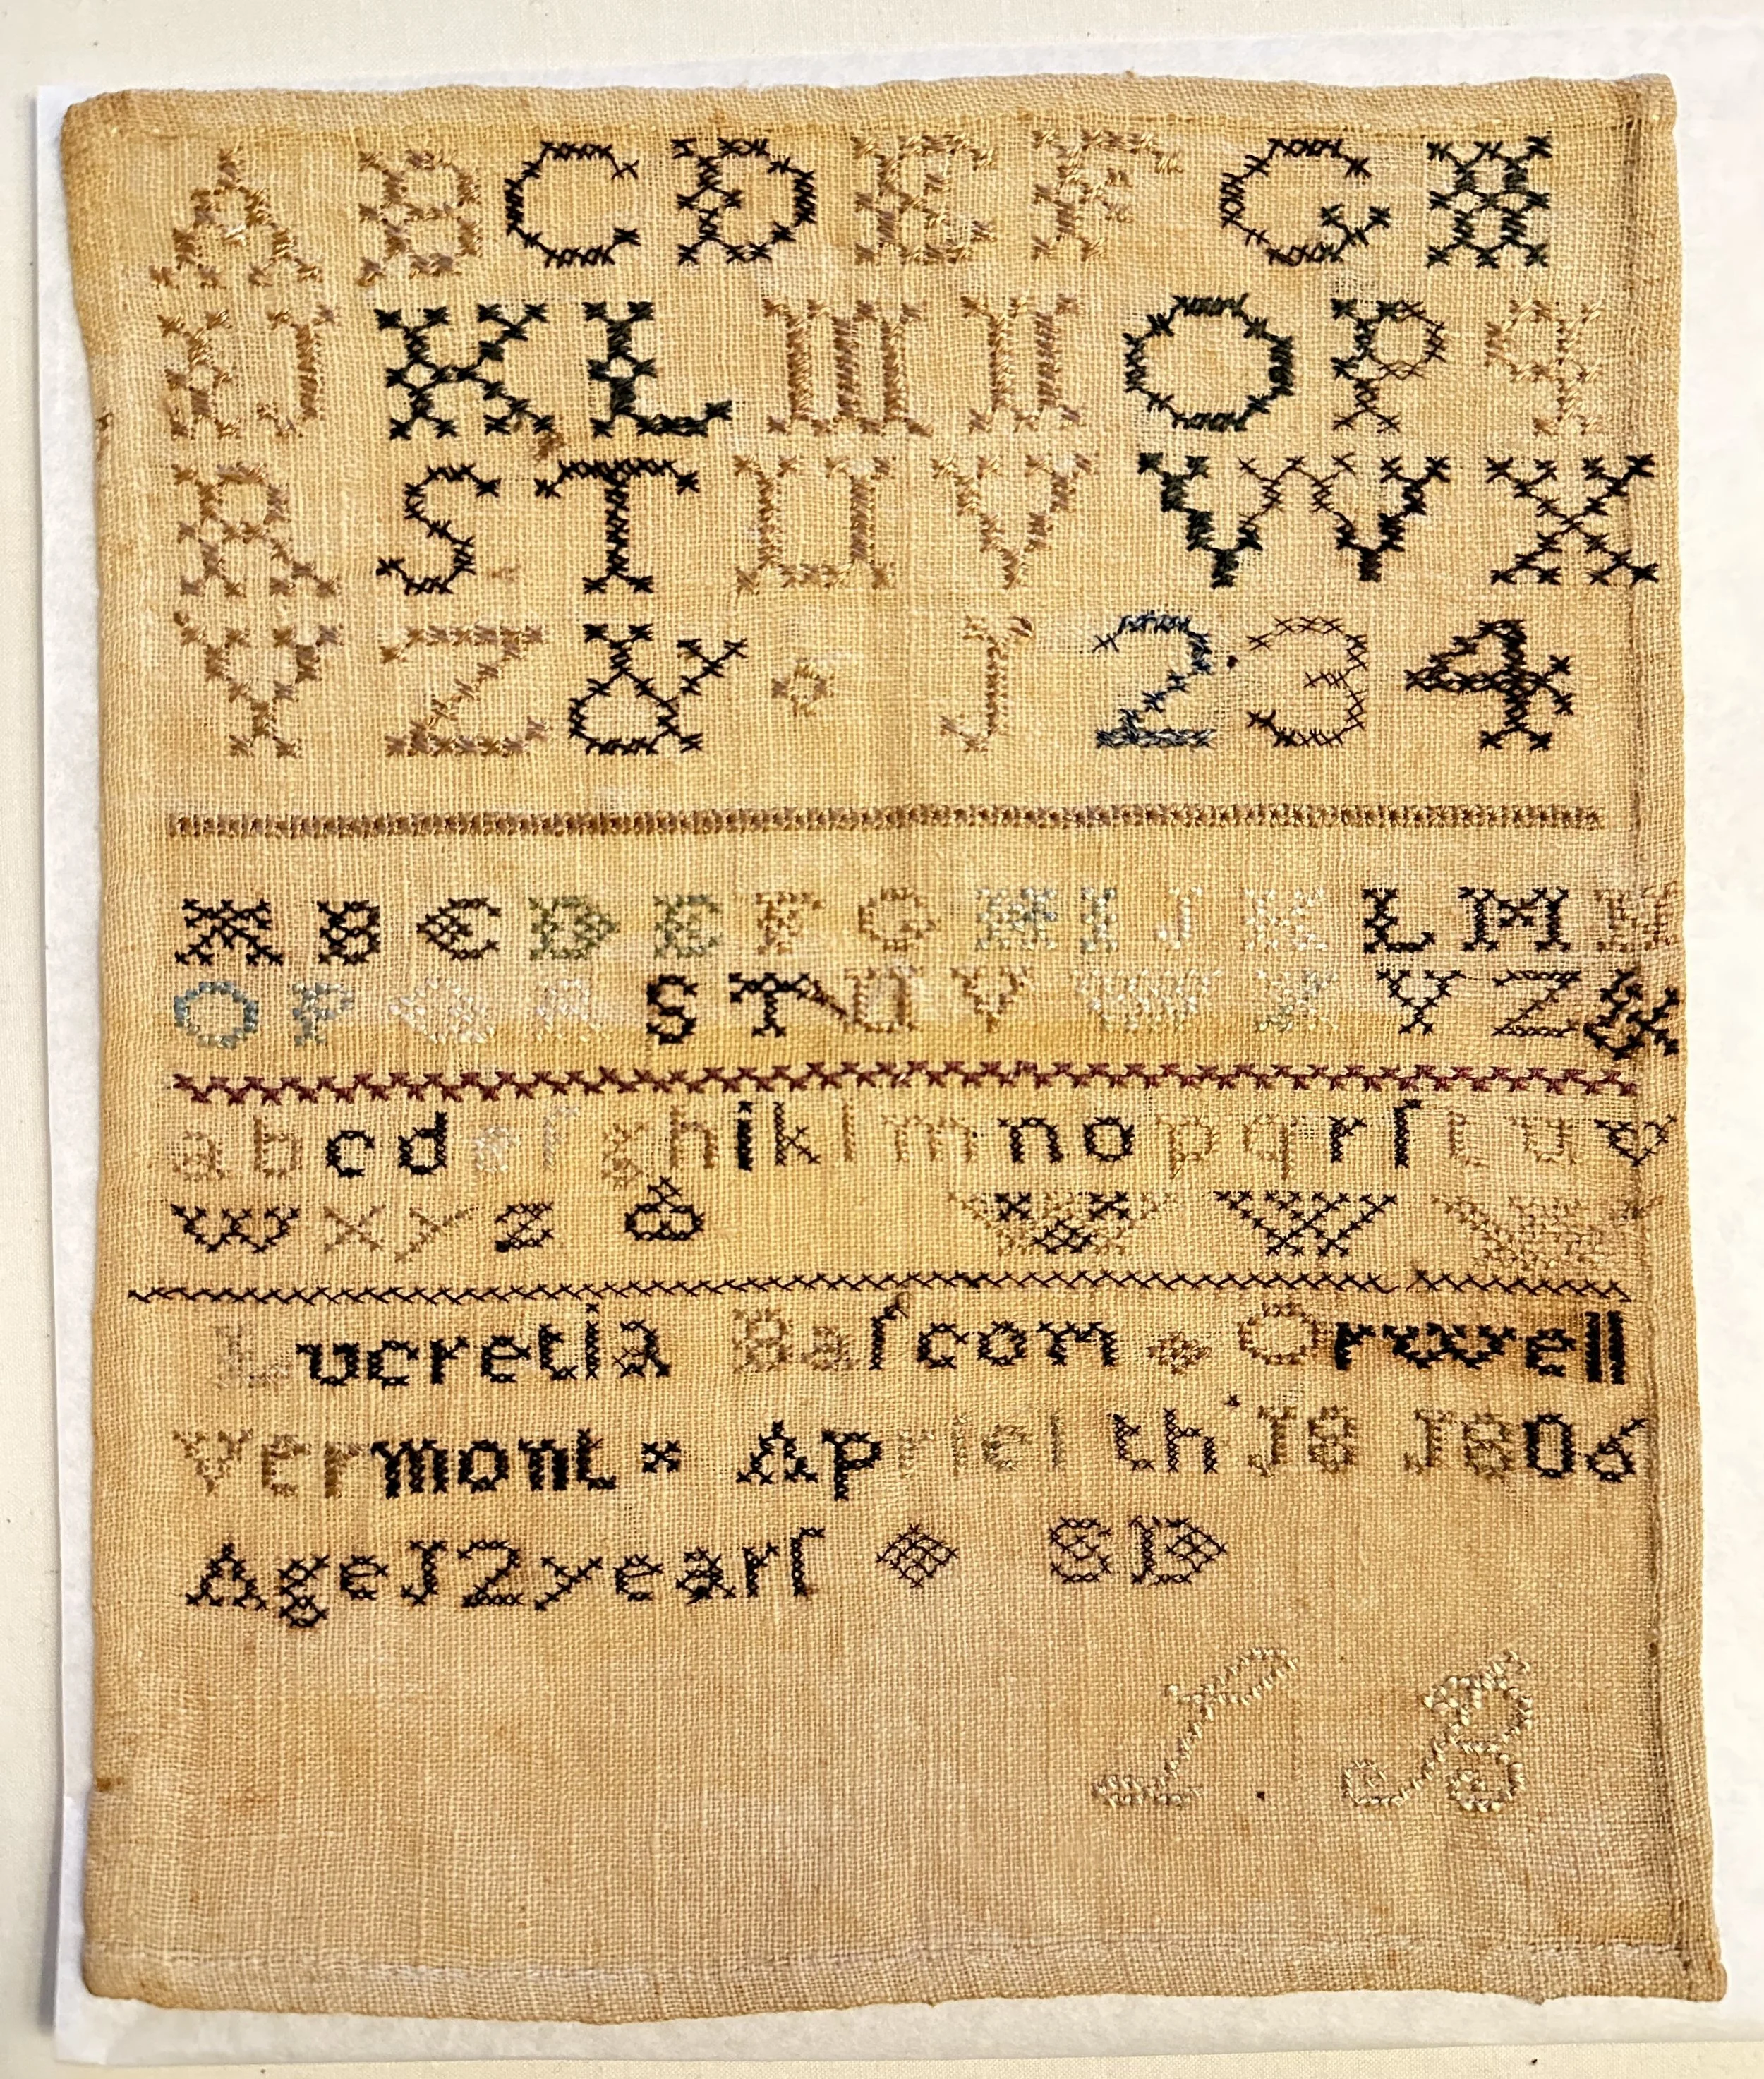 A B C D E F G H
I J K L M N O P q
R S T U V W X
Y Z & J 2 3 4
A B C D E F G H I J K L M N
O P Q R S T U V W X Y Z &
a b c d e f g h i k l m n o p q r ſ t u v
w x y z &
Lucretia Balſcom Orwell
Vermont Apriel th J8 J806
Age J2 yearſ SD
L B